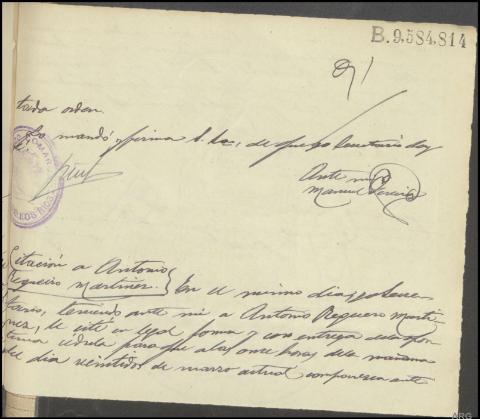 B.9.584,814
tada orden.
Lo mandó y firma S.Sa., de que yo Secretario doy
Ante mi
Manuel Pereira
Citación a Antonio
Regueiro Martínez } En el mismo dia, yo Secre-
tario, teniendo ante mi, a Antonio Regueiro Marti-
nez, le cité en legal forma y con entrega de la opor-
tuna cédula para que a las once horas de la mañana
del dia veintidos de marzo actual comparezca ante
ARG